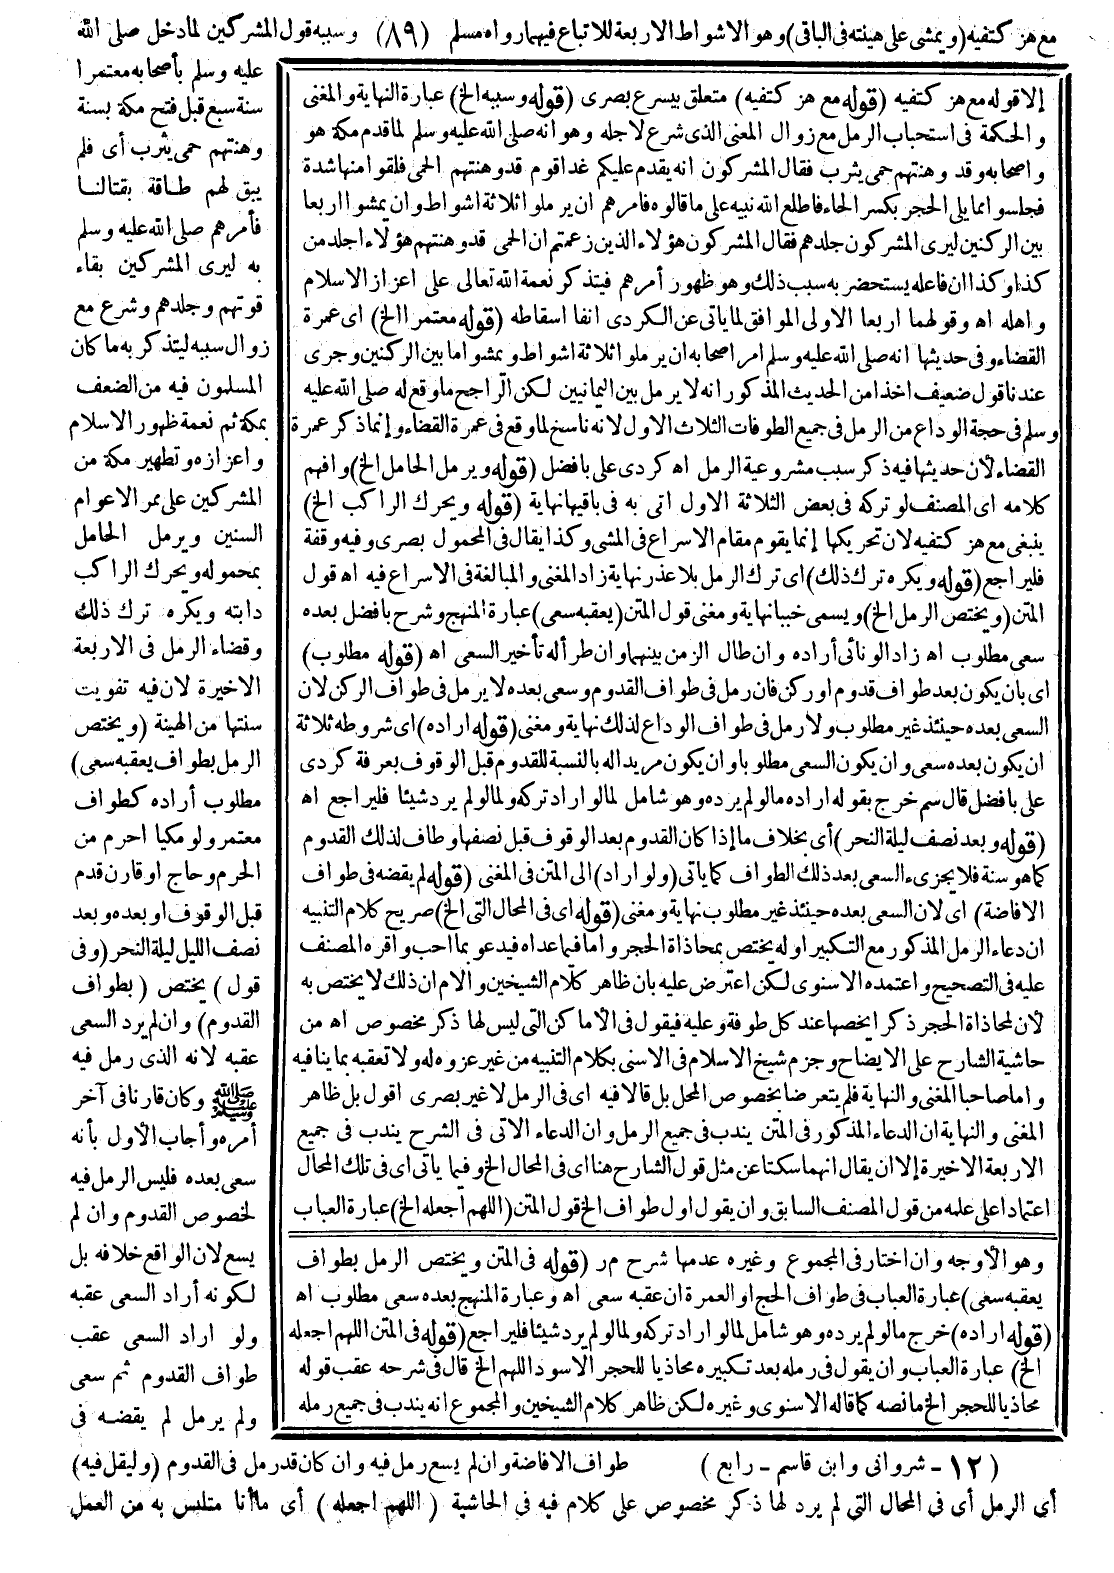 مع هز كتفيه (ويمشى على هينته فى الباقى) وهو الاشواط الاربعة للاتباع فيهما رواه مسلم (٨٩) وسببه قول المشركين لما دخل صلى الله
عليه وسلم بأصحابه معتمرا
سنة سبع قبل فتح مكة بسنة
وهنتهم حمى يثرب أى فلم
يبق لهم طاقة بقتالنا
فأمرهم صلى الله عليه وسلم
به ليرى المشركين بقاء
قوتهم وجلدهم وشرع مع
زوال سببه ليتذكر به ما كان
المسلمون فيه من الضعف
بمكة ثم نعمة ظهور الاسلام
واعزازه وتطهير مكة من
المشركين على ممر الاعوام
السنين ويرمل الحامل
بمحموله ويحرك الراكب
دابته ويكره ترك ذلك
وقضاء الرمل فى الاربعة
الاخيرة لان فيه تفويت
سنتها من الهينة (ويختص
الرمل بطواف يعقبه سعى)
مطلوب أراده كطواف
معتمر ولو مكيا احرم من
الحرم وحاج او قارن قدم
قبل الوقوف او بعده وبعد
نصف الليل ليلة النحر (وفى
قول) يختص (بطواف
القدوم) وان لم يرد السعى
عقبه لانه الذى رمل فيه
ﷺ وكان قارنا فى آخر
أمره وأجاب الأول بأنه
سعى بعده فليس الرمل فيه
لخصوص القدوم وان لم
يسع لان الواقع خلافه بل
لكونه أراد السعى عقبه
ولو اراد السعى عقب
طواف القدوم ثم سعى
ولم يرمل لم يقضه فى
طواف الافاضة وان لم يسع رمل فيه وان كان قد رمل فى القدوم (وليقل فيه)
أى الرمل أى فى المحال التى لم يرد لها ذكر مخصوص على كلام فيه فى الحاشية (اللهم اجعله) أى ما أنا متلبس به من العمل
إلا قوله مع هز كتفيه (قوله مع هز كتفيه) متعلق بيسرع بصرى (قوله وسببه الخ) عبارة النهاية والمغنى
والحكمة فى استحباب الرمل مع زوال المعنى الذى شرع لاجله وهو انه صلى الله عليه وسلم لما قدم مكة هو
واصحابه وقد وهنتهم حمى يثرب فقال المشركون انه يقدم عليكم غدا قوم قد وهنتهم الحمى فلقوا منها شدة
فجلسوا مما يلى الحجر بكسر الحاء فاطلع الله نبيه على ما قالوه فامرهم ان يرملوا ثلاثة اشواط وان يمشوا اربعا
بين الركنين ليرى المشركون جلدهم فقال المشركون هؤلاء الذين زعمتم ان الحمى قد وهنتهم هؤلاء اجلد من
كذا وكذا ان فاعله يستحضر به سبب ذلك وهو ظهور أمرهم فيتذكر نعمة الله تعالى على اعزاز الاسلام
واهله اه وقولهما اربعا الاولى الموافق لما ياتى عن الكردى انفا اسقاطه (قوله معتمرا الخ) اى عمرة
القضاء وفى حديثها انه صلى الله عليه وسلم امر اصحابه ان يرملوا ثلاثة اشواط ويمشوا ما بين الركنين وجرى
عندنا قول ضعيف اخذا من الحديث المذكور انه لا يرمل بين اليمانيين لكن الراجح ما وقع له صلى الله عليه
وسلم فى حجة الوداع من الرمل فى جميع الطوفات الثلاث الاول لانه ناسخ لما وقع فى عمرة القضاء وإنما ذكر عمرة
القضاء لأن حديثها فيه ذكر سبب مشروعية الرمل اه كردى على بافضل (قوله ويرمل الحامل الخ) وافهم
كلامه اى المصنف لو تركه فى بعض الثلاثة الاول اتى به فى باقيها نهاية (قوله ويحرك الراكب الخ)
ينبغى مع هز كتفيه لان تحريكها إنما يقوم مقام الاسراع فى المشى وكذا يقال فى المحمول بصرى وفيه وقفة
فليراجع (قوله ويكره ترك ذلك) اى ترك الرمل بلا عذر نهاية زاد المغنى والمبالغة فى الاسراع فيه اه قول
المتن (ويختص الرمل الخ) ويسمى خببا نهاية ومغنى قول المتن (يعقبه سعى) عبارة المنهج وشرح بافضل بعده
سعى مطلوب اه زاد الونائى أراده وان طال الزمن بينهما وان طرأ له تأخير السعى اه (قوله مطلوب)
اى بان يكون بعد طواف قدوم او ركن فان رمل فى طواف القدوم وسعى بعده لا يرمل فى طواف الركن لان
السعى بعده حينئذ غير مطلوب ولا رمل فى طواف الوداع لذلك نهاية ومغنى (قوله اراده) اى شروطه ثلاثة
ان يكون بعده سعى وان يكون السعى مطلوبا وان يكون مريدا له بالنسبة للقدوم قبل الوقوف بعرفة كردى
على بافضل قال سم خرج بقوله اراده ما لو لم يرده وهو شامل لما لو اراد تركه ولما لو لم يرد شيئا فليراجع اه
(قوله وبعد نصف ليلة النحر) أى بخلاف ما إذا كان القدوم بعد الوقوف قبل نصفها وطاف لذلك القدوم
كما هو سنة فلا يجزىء السعى بعد ذلك الطواف كما ياتى (ولو اراد) الى المتن فى المغنى (قوله لم يقضه فى طواف
الافاضة) اى لان السعى بعده حينئذ غير مطلوب نهاية ومغنى (قوله اى فى المحال التى الخ) صريح كلام التنبيه
ان دعاء الرمل المذكور مع التكبير اوله يختص بمحاذاة الحجر واما فيما عداه فيدعو بما احب واقره المصنف
عليه فى التصحيح واعتمده الاسنوى لكن اعترض عليه بان ظاهر كلام الشيخين والام ان ذلك لا يختص به
لأن لمحاذاة الحجر ذكر ا يخصها عند كل طوفة وعليه فيقول فى الأماكن التى ليس لها ذكر مخصوص اه من
حاشية الشارح على الايضاح وجزم شيخ الاسلام فى الاسنى بكلام التنبيه من غير عزوه له ولا تعقبه بما ينافيه
واما صاحبا المغنى والنهاية فلم يتعرضا بخصوص المحل بل قالا فيه اى فى الرمل لا غير بصرى اقول بل ظاهر
المغنى والنهاية ان الدعاء المذكور فى المتن يندب فى جميع الرمل وان الدعاء الاتى فى الشرح يندب فى جميع
الاربعة الاخيرة إلا ان يقال انهما سكتا عن مثل قول الشارح هنا اى فى المحال الخ وفيما ياتى اى فى تلك المحال
اعتمادا على علمه من قول المصنف السابق وان يقول اول طواف الخ قول المتن (اللهم أجعله الخ) عبارة العباب
وهو الأوجه وان اختار فى المجموع وغيره عدمها شرح م ر (قوله فى المتن ويختص الرمل بطواف
يعقبه سعى) عبارة العباب فى طواف الحج او العمرة ان عقبه سعى اه وعبارة المنهج بعده سعى مطلوب اه
(قوله اراده) خرج ما لو لم يرده وهو شامل لما لو اراد تركه ولما لو لم يرد شيئا فليراجع (قوله فى المتن اللهم اجعله
الخ) عبارة العباب وان يقول فى رمله بعد تكبيره محاذيا للحجر الاسود اللهم الخ قال فى شرحه عقب قوله
محاذيا للحجر الخ ما نصه كما قاله الاسنوى وغيره لكن ظاهر كلام الشيخين والمجموع انه يندب فى جميع رمله
(١٢ - شروانى وابن قاسم - رابع)